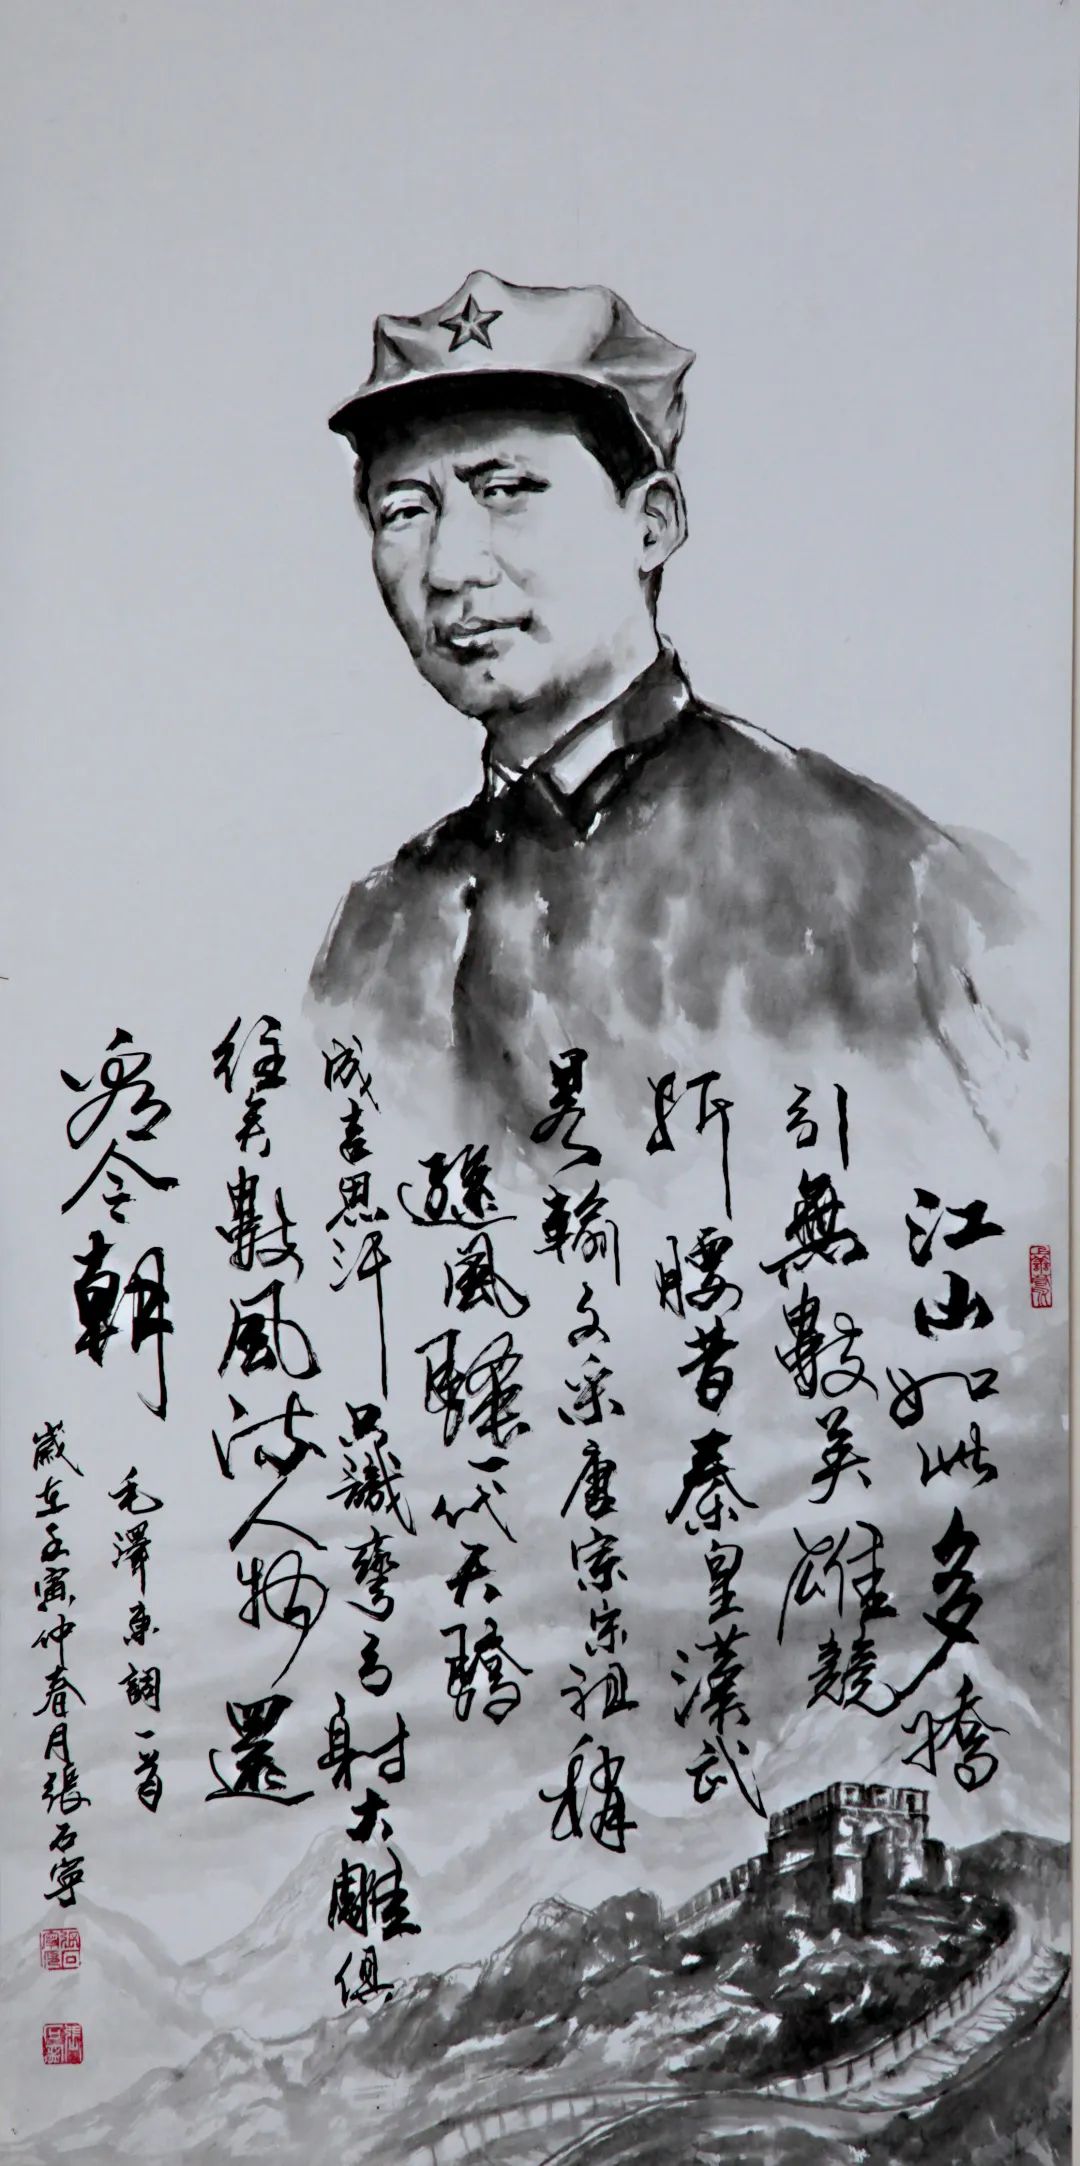 江山如此多嬌
引無數英雄競
折腰昔秦皇漢武
畧輸文采唐宗宋祖稍
遜風騷一代天驕
成吉思汗只識彎弓射大雕俱
往矣數風流人物還
看今朝
毛澤東詞一首
歲在壬寅仲春月張石寧